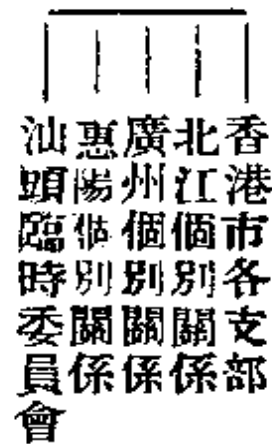 香港市各支部
北江個別關係
廣州個別關係
惠陽個別關係
汕頭臨時委員會